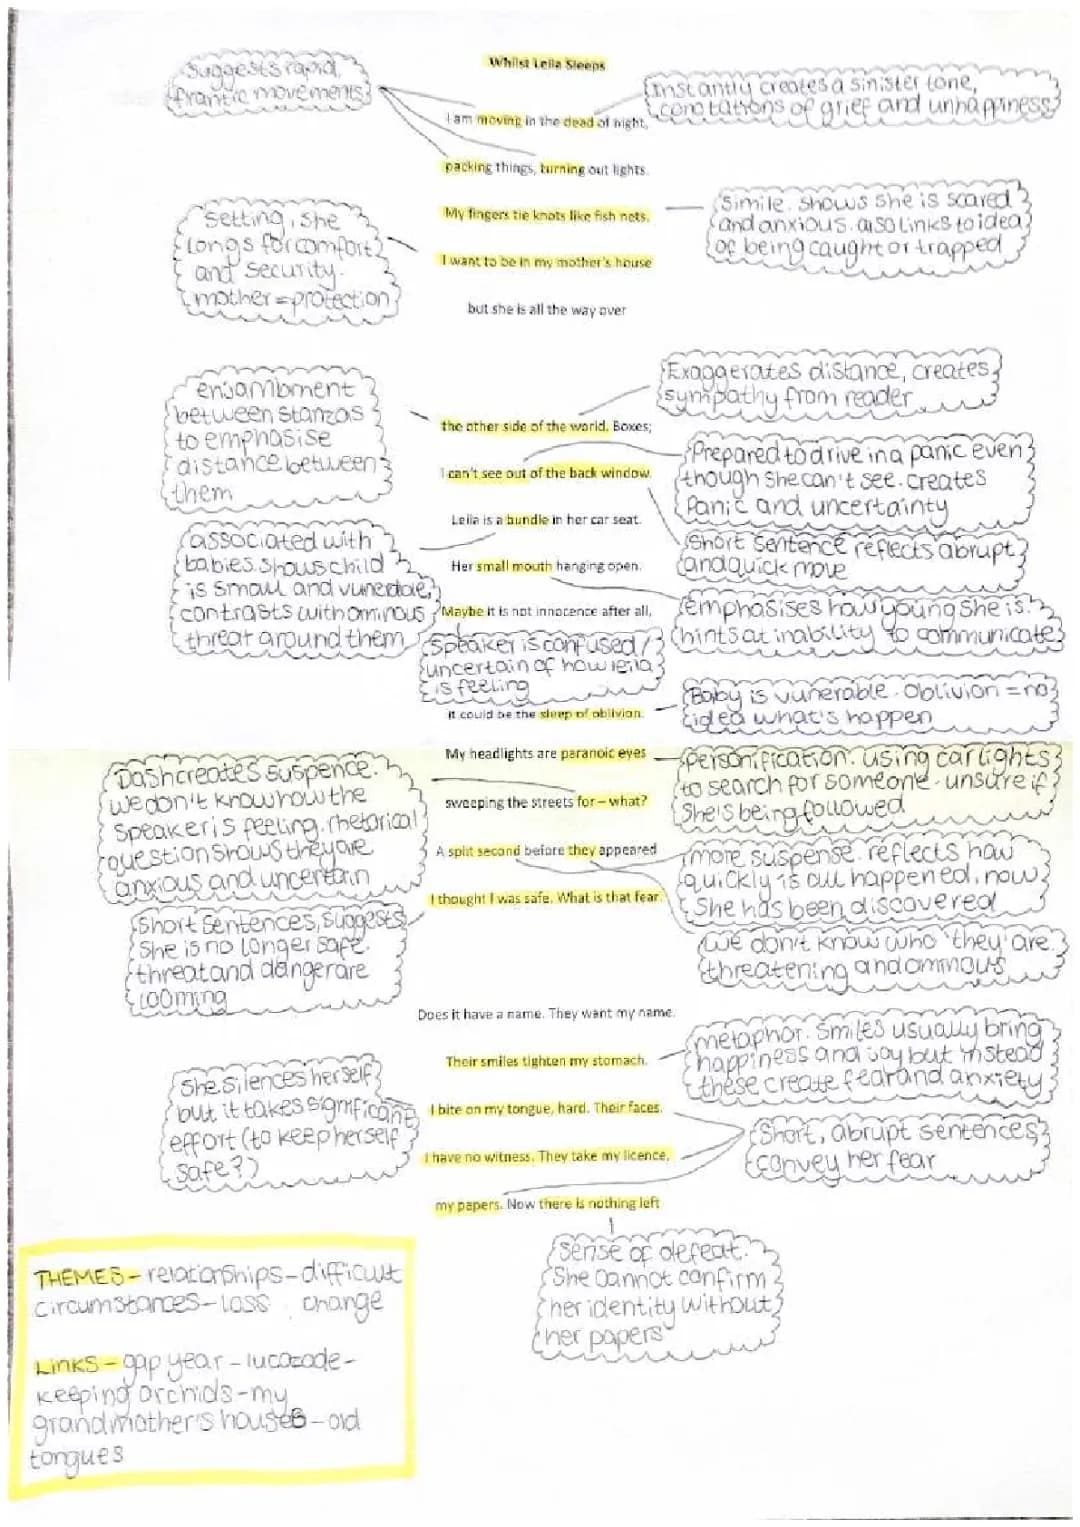 Whilst Leila Sleeps
Suggests rapid,
frantic movements
Instantly creates a sinister tone,
conotations of grief and unhappiness
I am moving in the dead of night,
packing things, turning out lights.
My fingers tie knots like fish nets.
Simile. shows she is scared
and anxious. also links to idea
of being caught or trapped
Setting, she
longs for comfort
and security.
mother = protection
I want to be in my mother's house
but she is all the way over
enjambment
between stanzas
to emphasise
distance between
them
Exaggerates distance, creates
sympathy from reader
the other side of the world. Boxes;
I can't see out of the back window.
Prepared to drive in a panic even
though she can't see. creates
Panic and uncertainty
Leila is a bundle in her car seat.
associated with
babies. shows child
is small and vunerable,
contrasts with ominous
threat around them
Short sentence reflects abrupt
and quick move
Her small mouth hanging open.
emphasises how young she is.
hints at inability to communicate
Maybe it is not innocence after all,
Speaker is confused /
uncertain of how leila
is feeling
it could be the sleep of oblivion.
Baby is vunerable. Oblivion = no
idea what's happen
My headlights are paranoic eyes
personification. using car lights
to search for someone - unsure if
she's being followed
Dash creates suspence.
we don't know how the
speaker is feeling. rhetorical
question shows they are
anxious and uncertain
sweeping the streets for – what?
A split second before they appeared
more suspense. reflects how
quickly is all happened, now
she has been discovered
I thought I was safe. What is that fear.
Short sentences, suggests
she is no longer safe.
threat and danger are
looming
we don't know who 'they' are.
threatening and ominous
Does it have a name. They want my name.
Their smiles tighten my stomach.
metaphor. Smiles usually bring
happiness and joy but instead
these create fear and anxiety
She silences herself
but it takes significant
effort (to keep herself
safe?)
I bite on my tongue, hard. Their faces.
I have no witness. They take my licence,
Short, abrupt sentences
convey her fear
my papers. Now there is nothing left
Sense of defeat.
She cannot confirm
her identity without
her papers
THEMES – relationships – difficult
circumstances – loss change
Links – gap year – lucozade –
keeping orchids – my
grandmother's houses – old
tongues